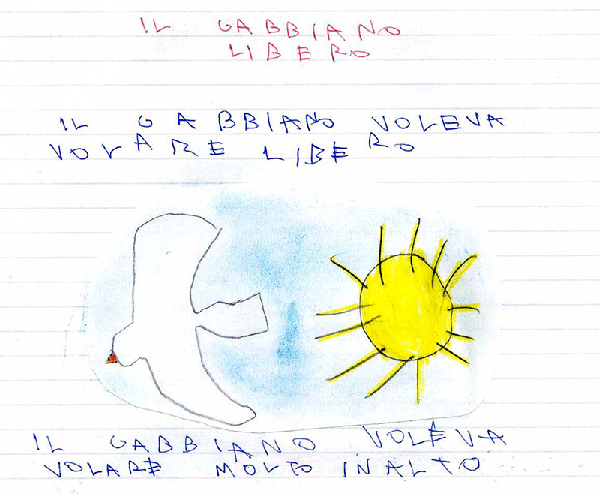 IL GABBIANO
LIBERO
IL GABBIANO VOLEVA
VOLARE LIBERO
IL GABBIANO VOLEVA
VOLARE MOLTO IN ALTO